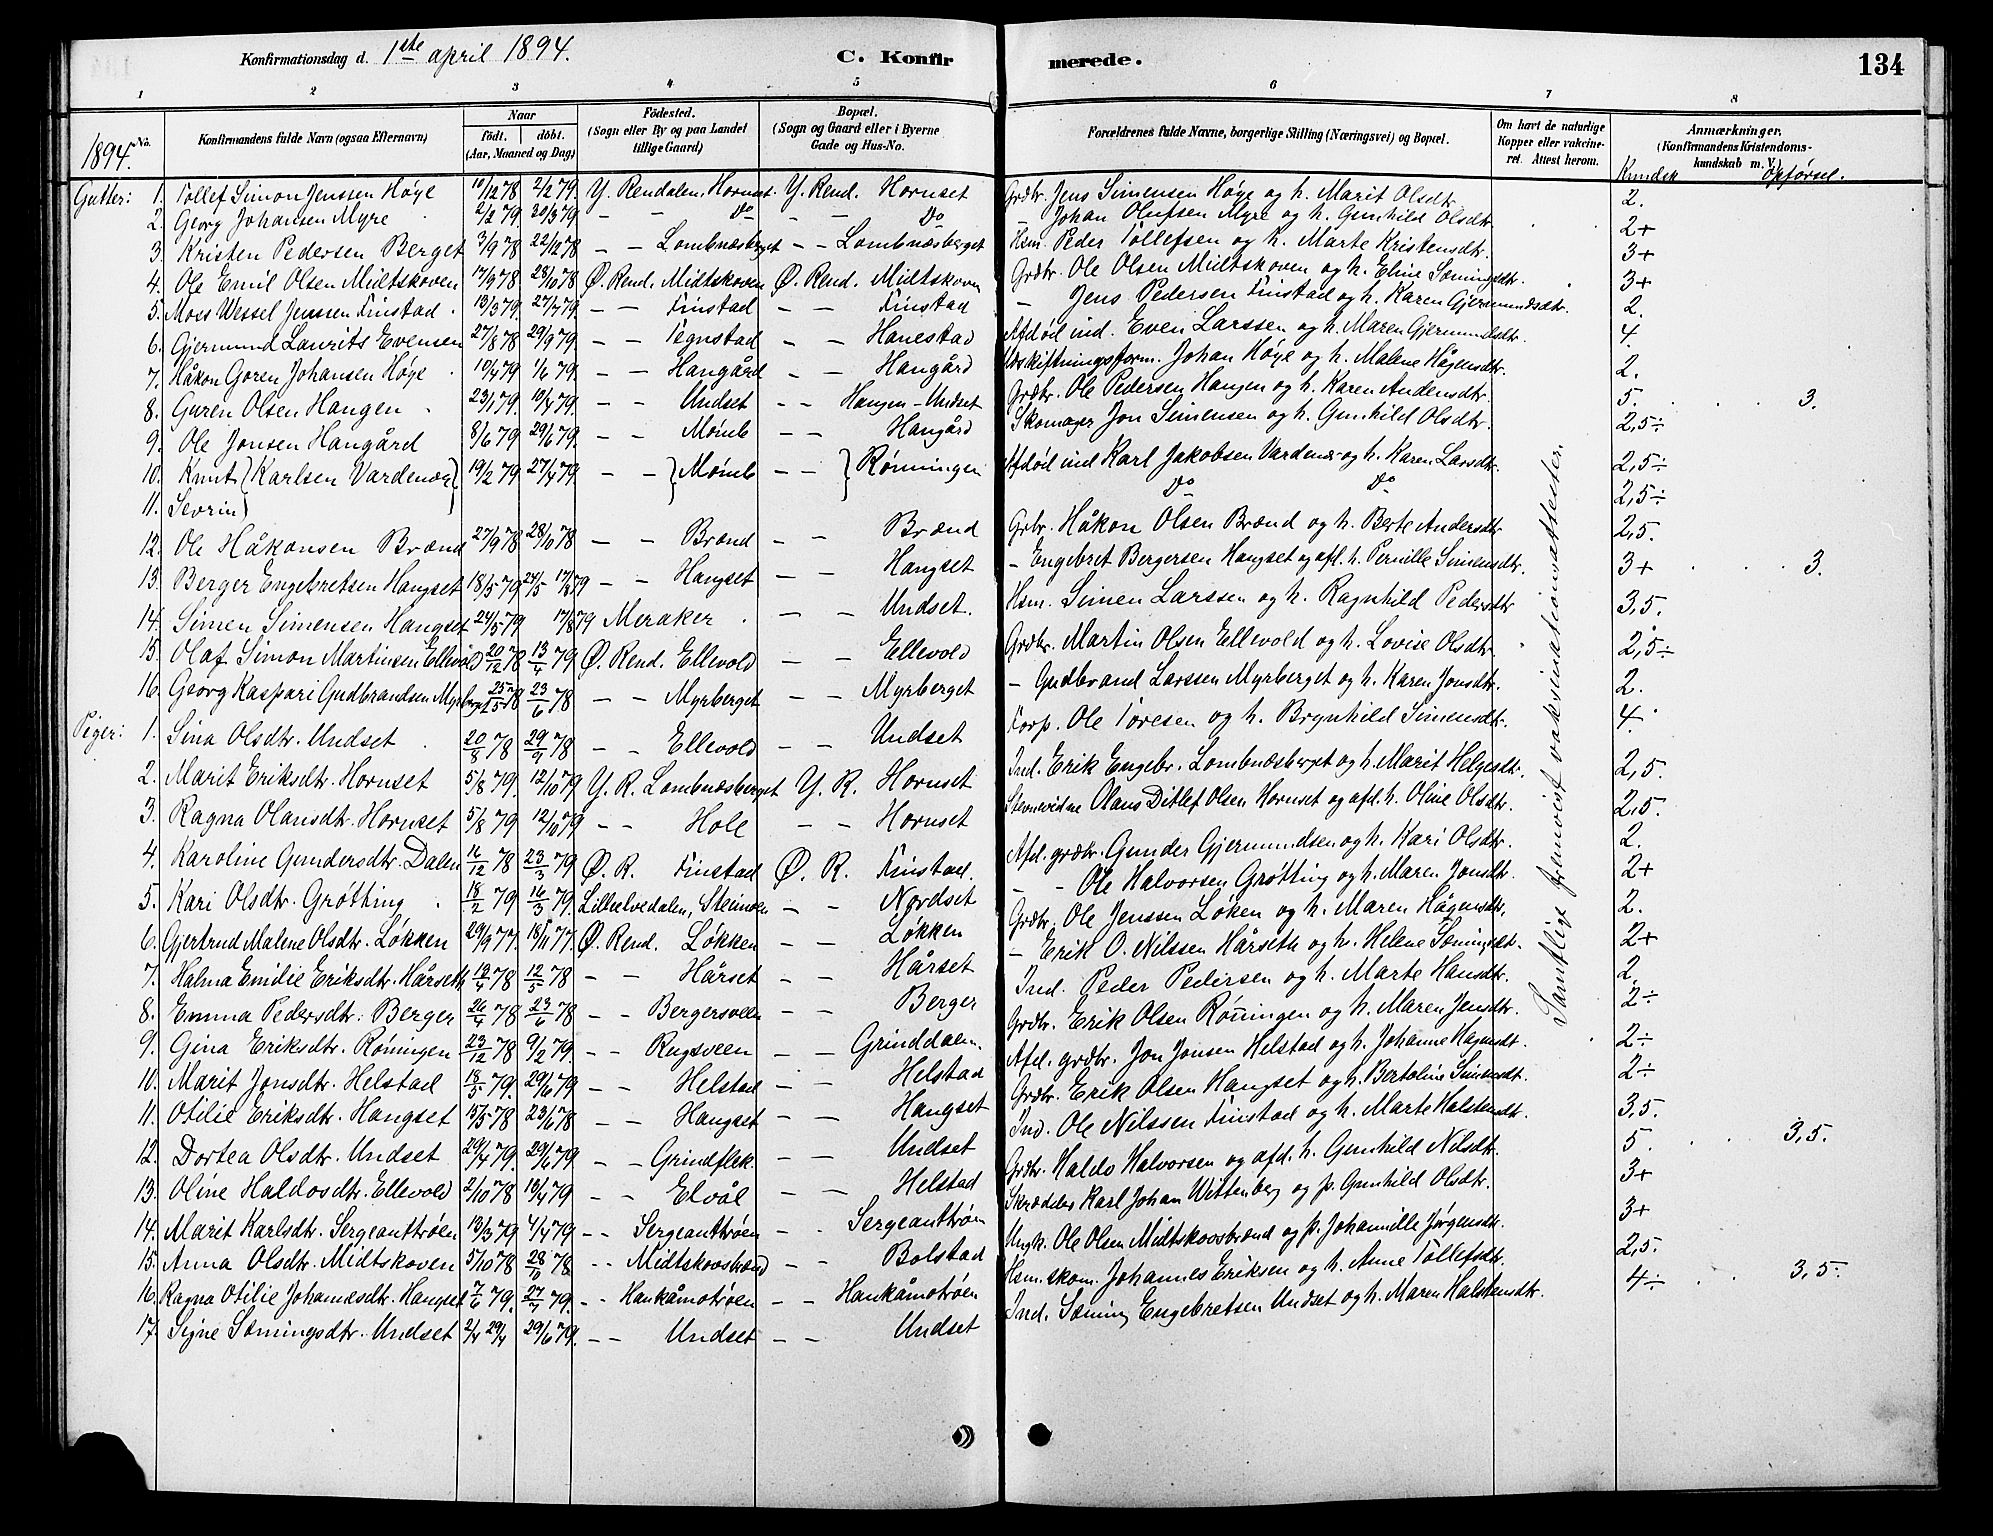 Konfirmationsdag d. 1ste april 1894. C. Konfir merede. 134
1 2 3 4 5 6 7 8
1894. No. Konfirmandens fulde Navn (ogsaa Efternavn) Naar Født. døbt. (Aar, Maaned og Dag) Fødested. (Sogn eller By og paa Landet tillige Gaard) Bopæl. (Sogn og Gaard eller i Byerne Gade og Hus-No. Forældrenes fulde Navne, borgerlige Stilling (Næringsvei) og Bopæl. Om havt de naturlige Kopper eller vakcineret. Attest herom. Anmærkninger. (Konfirmandens Kristendomskundskab m. V.) Kundsk opførsel.
Gutter: 1. Tollef Simon Jenssen Høye 10/12 78 2/2 79. Y. Rendalen, Hornset. Y. Rend. Hornset Grdbr. Jens Simensen Høye og h. Marit Olsdtr. 2.
2. Georg Johansen Myre 2/2 79. 30/3 79. – – Do – – Do – Johan Olufsen Myre og h. Gunhild Olsdtr. 2+
3. Kristen Pedersen Berget 3/9 78 22/12 78 – – Lombnæsberget – – Lombnæsberget Hsm. Peder Tollefsen og h. Marte Kristensdtr. 3+
4. Ole Emil Olsen Midtskoven 17/9 78 28/10 78 Ø. Rend. Midtskoven Ø. Rend. Midtskoven Grdbr. Ole Olsen Midtskoven og h. Eline Sæmingsdtr. 3+
5. Moss Wessel Jenssen Finstad. 13/3 79. 27/7 79. – – Finstad – – Finstad – Jens Pedersen Finstad og h. Karen Gjermundsdtr. 2.
6. Gjermund Laurits Evensen 27/8 78 29/9 79. – – Tegnstad – – Hanestad Afdød ind. Even Larssen og h. Maren Gjermundsdtr. 4.
7. Håkon Goren Johansen Høye. 10/4 79 1/6 79. – – Hangård – – Hangård Udskiftningsform. Johan Høye og h. Malene Hågensdtr. 2.
8. Guren Olsen Hangen 23/1 79. 10/4 79. – – Undset – – Hangen – Undset Grdbr. Ole Pedersen Hangen og h. Karen Andersdtr. 5. 3.
9. Ole Jonsen Hangård 8/6 79. 29/6 79. – – Mømb – – Hangård Skomager Jon Simensen og h. Gunhild Olsdtr. 2,5÷
10. Knut (Karlsen Vardenær) 19/2 79 27/4 79. – – } Mømb – – } Rønningen Afdød ind Karl Jakobsen Vardenær og h. Karen Larsdtr. 2,5÷
11. Sevrin Do Do 2,5÷
12. Ole Håkonsen Brænd 27/9 78 28/10 78 – – Brænd – – Brænd Grbr. Håkon Olsen Brænd og h. Berte Andersdtr 2,5.
13. Berger Engebretsen Hangset 18/5 79 – – Hangset – – Hangset – Engebret Bergersen Hangset og afd. h. Pernille Simensdtr. 3+ 3.
14. Simen Simensen Hangset 24/5 79 17/8 79 Meraker – – Undset. Hsm. Simen Larssen og h. Ragnhild Pedersdtr 3,5.
15. Olaf Simon Martinsen Ellevold 20/12 78 13/4 79 Ø. Rend. Ellevold – – Ellevold Grdbr. Martin Olsen Ellevold og h. Lovise Olsdtr. 2,5÷
16. Georg Kaspari Gudbrandsen Myrberget 25/5 78 23/6 78 – – Myrberget – – Myrberget – Gudbrand Larssen Myrberget og h. Karen Jonsdtr. 2.
Piger: 1. Sina Olsdtr. Undset 20/8 78 29/9 78 – – Ellevold – – Undset Korp. Ole Toresen og h. Brynhild Simensdtr. 4.
2. Marit Eriksdtr. Hornset 5/8 79. 12/10 79 Y. R. Lombnæsberget Y. R. Hornset Ind. Erik Engebr. Lombnæsberget og h. Marit Helgesdtr. 2,5.
3. Ragna Olansdtr. Hornset 5/8 79 12/10 79 – – Hole – – Hornset Stevnevidne Olaus Ditlef Olsen Hornset og afd. h. Oline Olsdtr. 2,5.
4. Karoline Gundersdtr. Dalen 16/12 78 23/3 79 Ø. R. Finstad Ø. R. Finstad. Afd. grdbr. Gunder Gjermundsen og h. Kari Olsdtr. 2.
5. Kari Olsdtr. Grøtting 18/2 79 16/3 79. Lilleelvedalen, Steimoen – – Nordset – – Ole Halvorsen Grøtting og h. Maren Jonsdtr. 2+
6. Gjertrud Malene Olsdtr. Løkken 29/9 77. 18/11 77. Ø. Rend. Løkken – – Løkken Grdbr. Ole Jenssen Løken og h. Maren Hågensdtr, 2.
7. Halma Emilie Eriksdtr. Hårseth 12/4 78 12/5 78 – – Hårset – – Hårset – Erik O. Nilssen Hårseth og h. Helene Sæmingsdtr. 2+
8. Emma Pedersdtr. Berger 26/4 78 23/6 78 – – Bergersveen – – Berger Ind. Peder Pedersen og h. Marte Hansdtr. 2.
9. Gina Eriksdtr. Røningen 23/12 78 9/2 79. – – Rugsveen – – Grinddalen. Grdbr. Erik Olsen Rønningen og h. Maren Jensdtr. 2÷
10. Marit Jonsdtr. Helstad 18/5 79. 29/6 79 – – Helstad – – Helstad Afd. grdbr. Jon Jonsen Helstad og h. Johanne Hagensdtr. 2÷
11. Otilie Eriksdtr. Hangset 15/5 78 23/6 78 – – Hangset – – Hangset Grdbr. Erik Olsen Hangset og h. Bertoline Simensdtr. 2÷
12. Dortea Olsdtr. Undset 29/4 79. 29/6 79 – – Grindflek. – – Undset Ind. Ole Nilssen Finstad og h. Marte Halstensdtr. 3,5.
13. Oline Haldosdtr. Ellevold 2/10 78 13/4 79 – – Elvål – – Helstad Grdbr. Haldo Halvorsen og afd. h. Gunhild Nilsdtr. 5. 3,5.
14. Marit Karlsdtr. Sergeanttrøen 13/3 79. 4/4 79 – – Sergeanttrøen – – Sergeanttrøen Skrædder Karl Johan Wittenberg og p. Gunhild Olsdtr. 3+
15. Anna Olsdtr. Midtskoven 5/10 78 28/10 78 – – Midtskovsbrænd – – Bolstad Ungk. Ole Olsen Midtskovsbrænd og p. Johannille Jørgensdtr. 3+
16. Ragna Otilie Johannesdtr. Hangset 7/6 79. 27/7 79. – – Hankåmotrøen – – Hankåmotrøen Hsm. skom. Johannes Eriksen og h. Anne Tollefsdtr. 2,5.
17. Signe Sæmingsdtr. Undset 2/4 29/4 29/6 79. – – Undset – – Undset Ind. Sæming Engebretsen Undset og h. Maren Halstensdtr. 4÷ 3,5.
Samtlige fremvist vaksinationsattester.